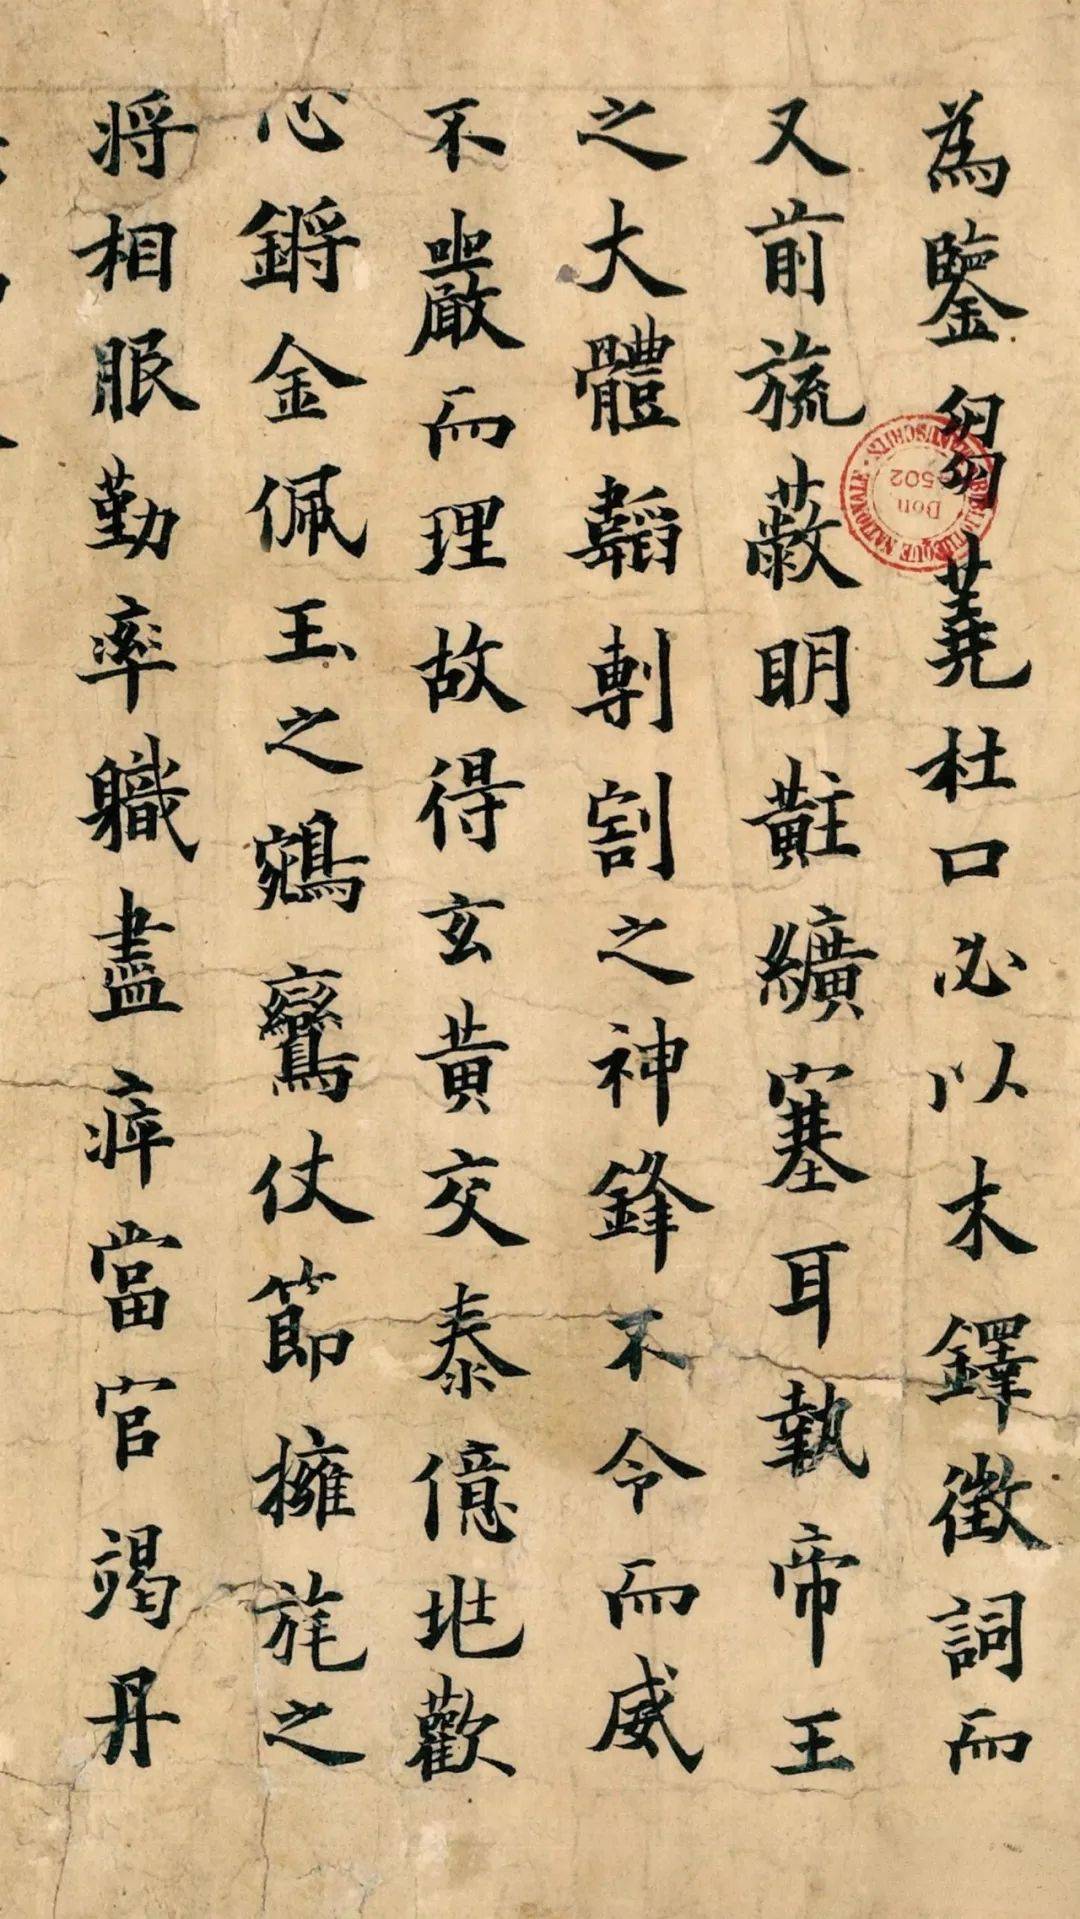 為鑒芻蕘杜口必以木鐸徵詞而
又前旒蔽明黈纊塞耳執帝王
之大體韜剸割之神鋒不令而威
不嚴而理故得玄黃交泰億兆歡
心鏘金佩玉之鵷鸞仗節擁旄之
將相服勤率職盡瘁當官竭丹
BIBLIOTHEQUE NATIONALE MANUSCRITS
Don